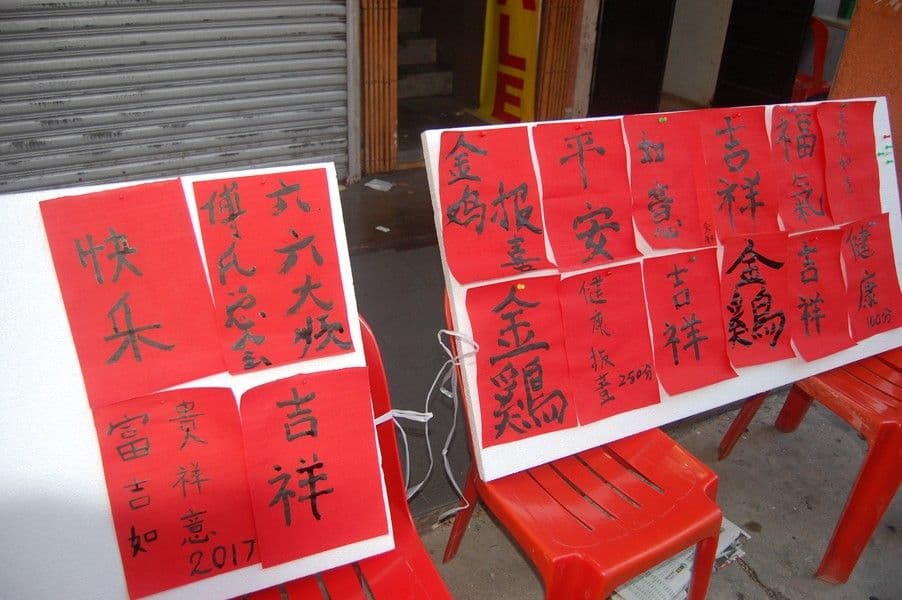 快乐
六六大顺
傅氏总会
吉祥
富贵
吉祥
如意
2017
金鸡
报喜
平安
如意
吉祥
福氣
金鷄
健康
250分
吉祥
金鷄
吉祥
健康
100分
ALE